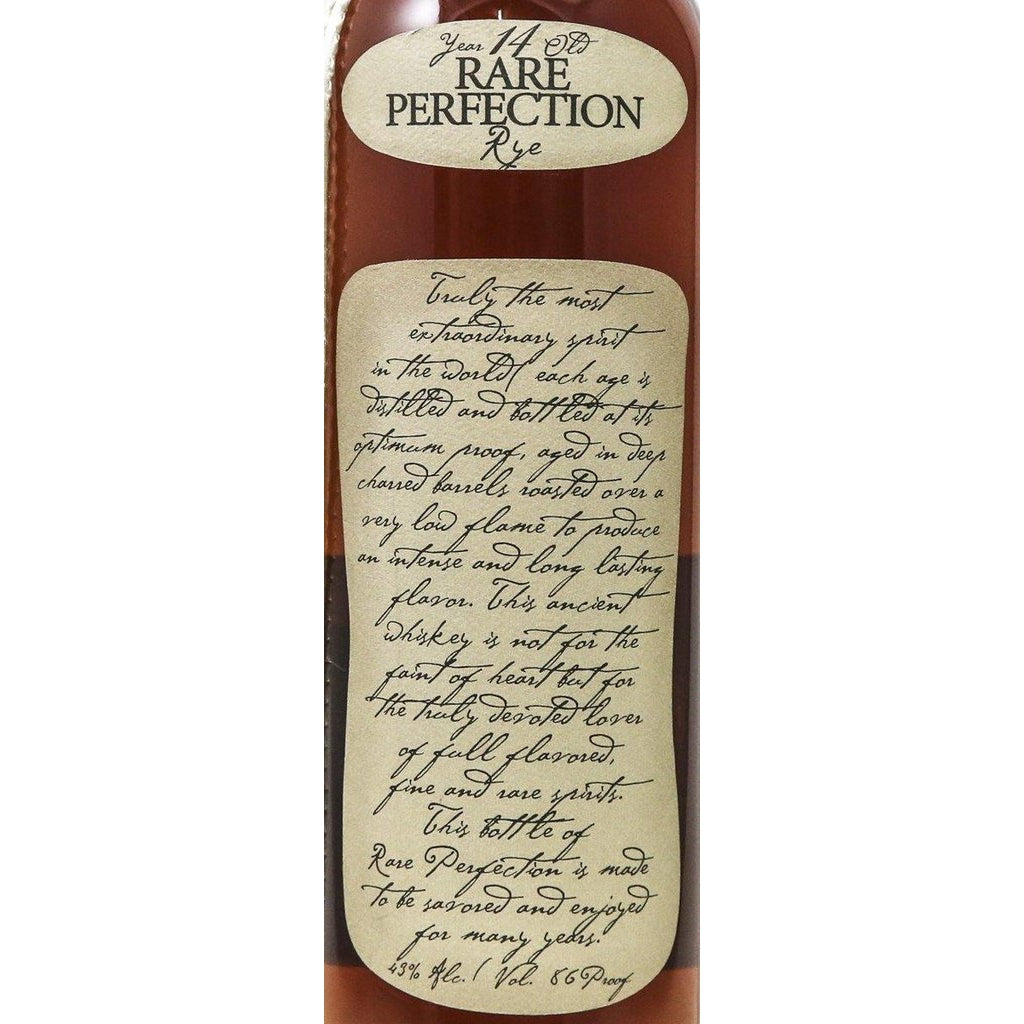 Year 14 Old
RARE
PERFECTION
Rye
Truly the most
extraordinary spirit
in the world( each age is
distilled and bottled at its
optimum proof, aged in deep
charred barrels roasted over a
very low flame to produce
an intense and long lasting
flavor. This ancient
whiskey is not for the
faint of heart but for
the truly devoted lover
of full flavored,
fine and rare spirits.
This bottle of
Rare Perfection is made
to be savored and enjoyed
for many years.
43% Alc. / Vol. 86 Proof